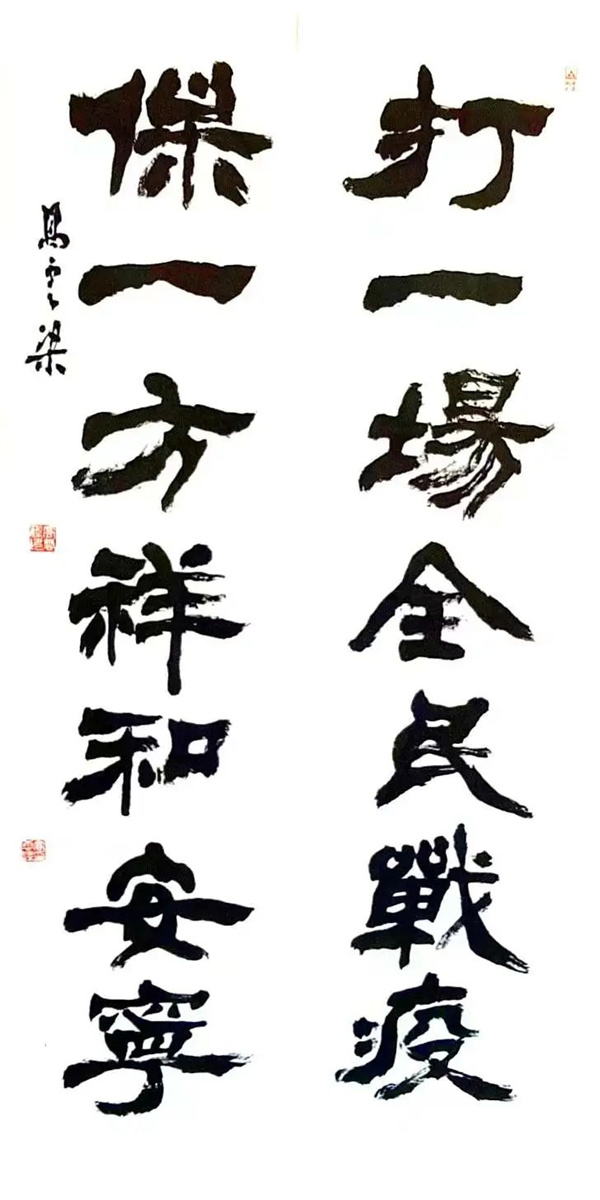 打一場全民戰疫
保一方祥和安寧